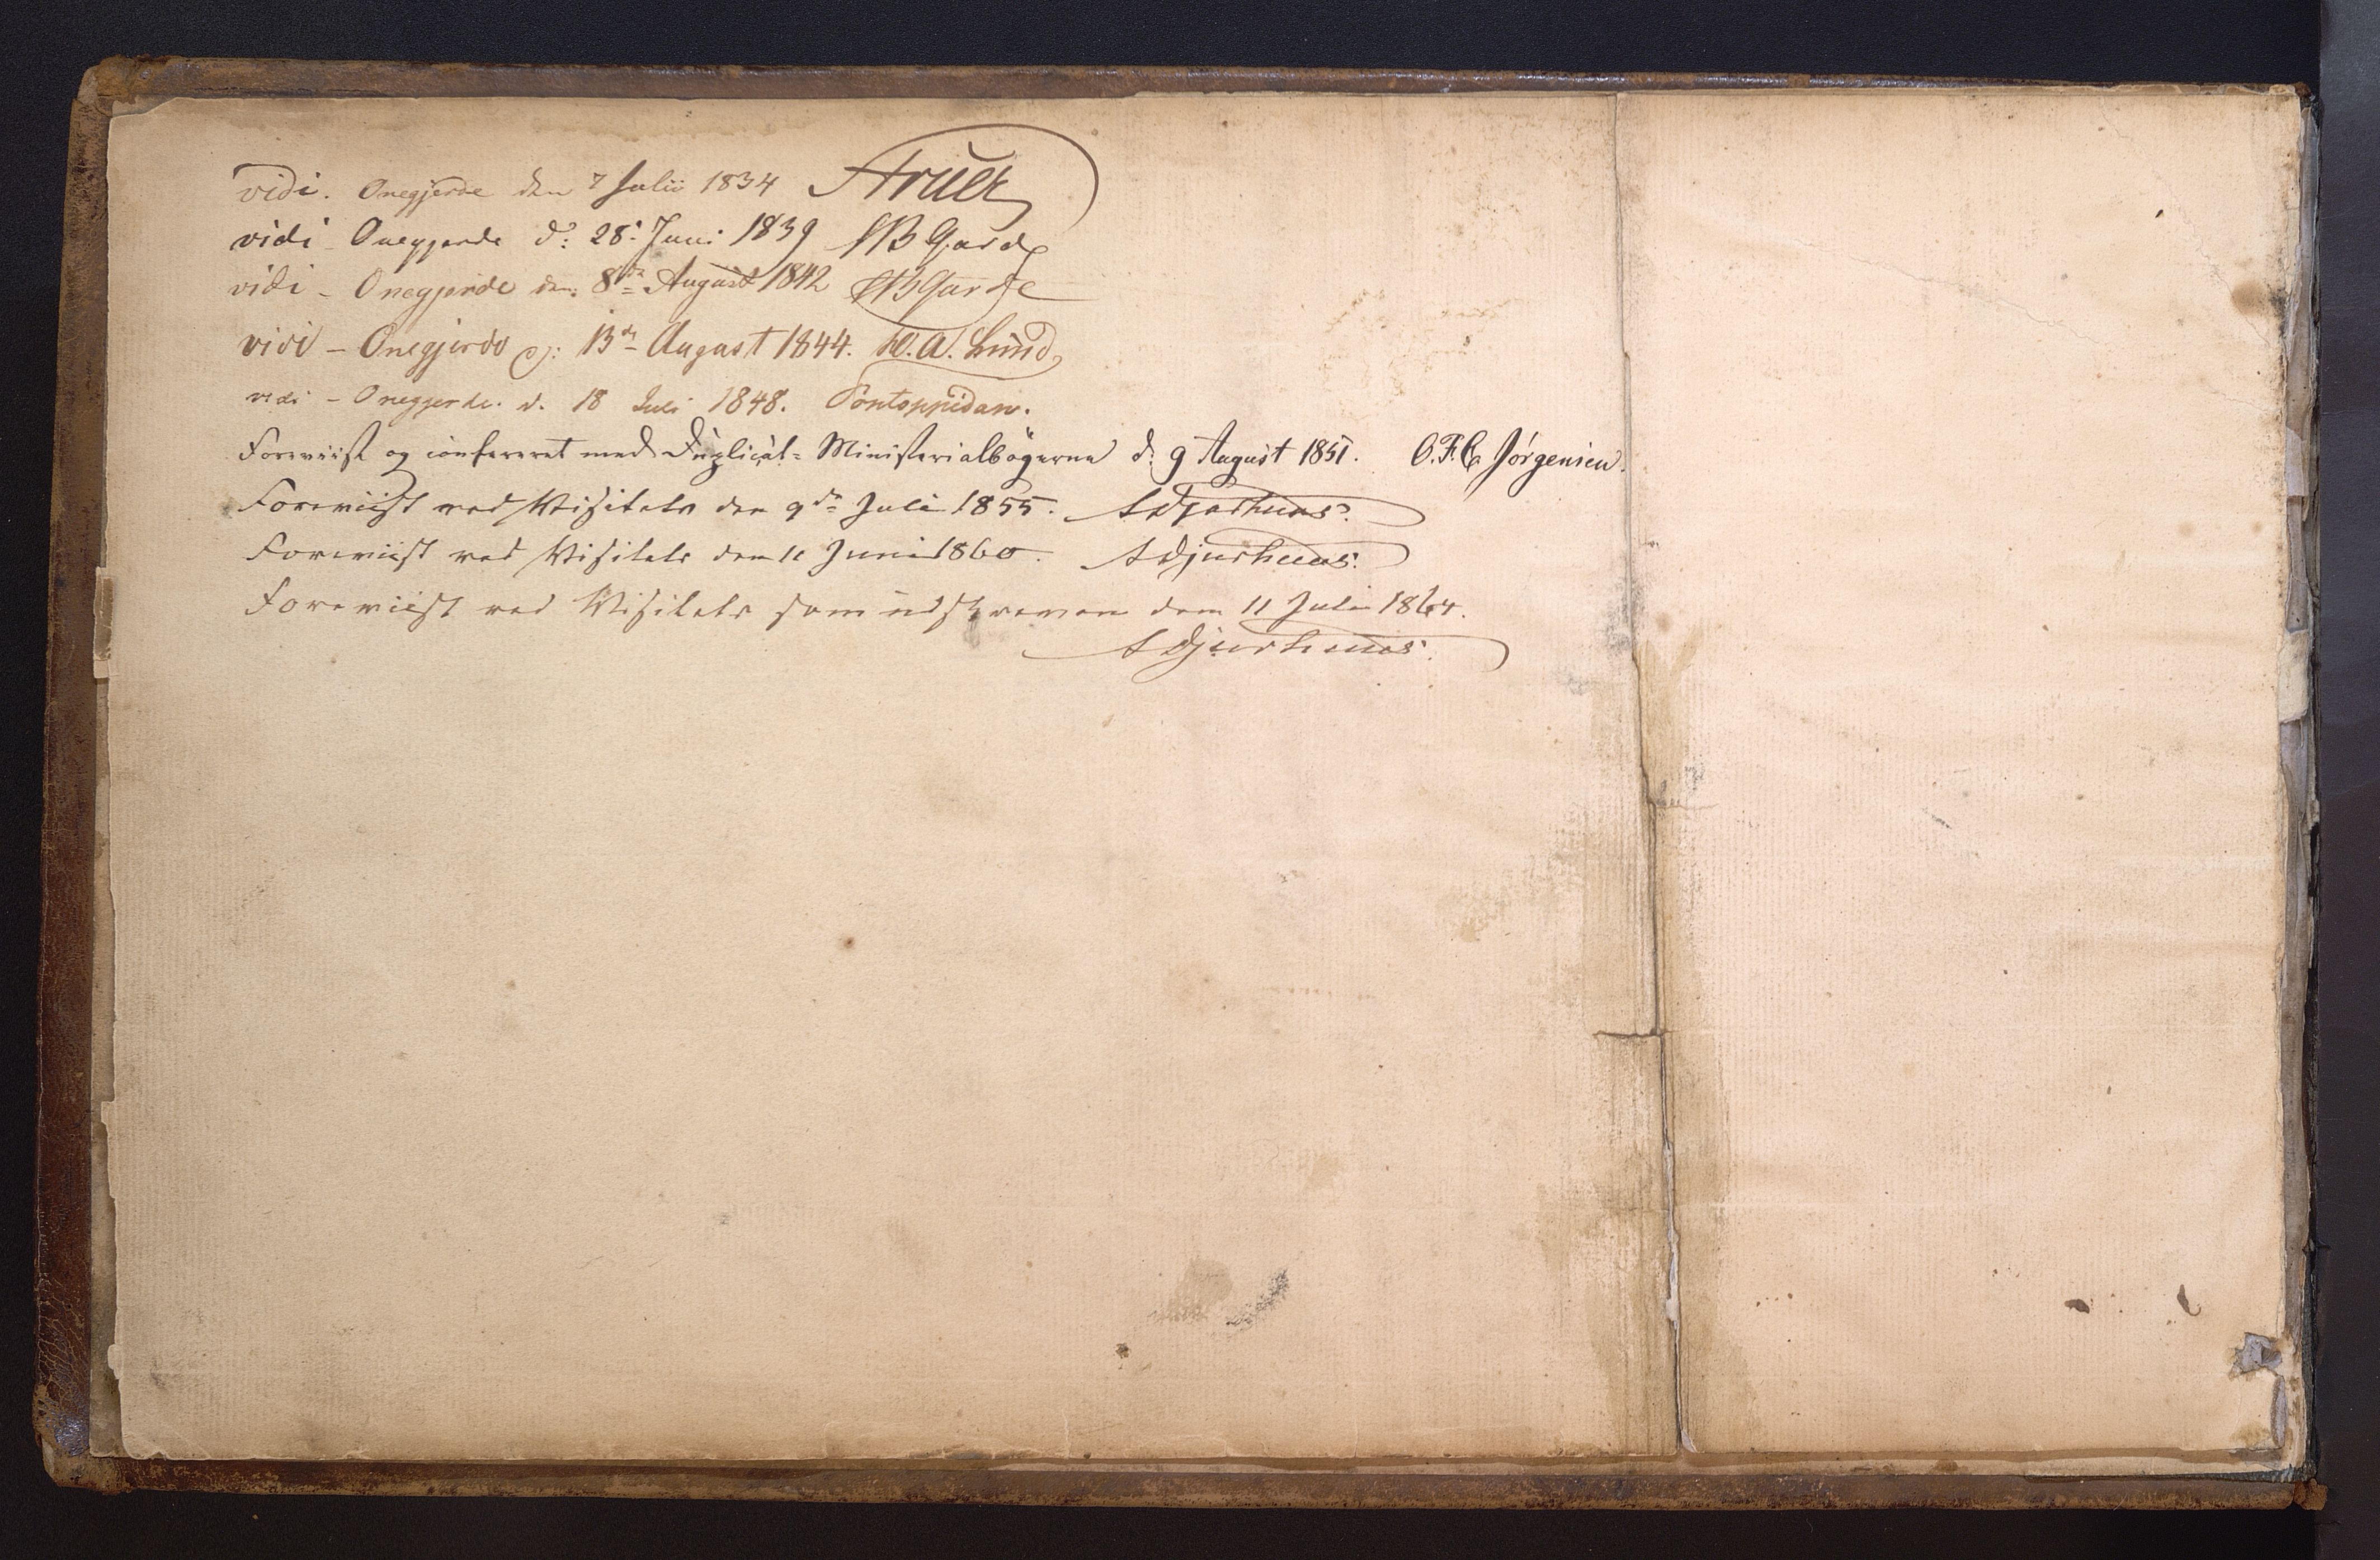 vidi. Onegjerde den 7 Julii 1834
vidi - Onegjerde d: 28: Juni 1839 Garde
vidi - Onegjerde den 8de August 1842 Garde
vidi - Onegjerde d: 13de August 1844. W. A. Lund
vidi - Onegjerde. d. 18 Juli 1848. Pontoppidan.
Foreviist og confereret med Duplicat- Ministerialbøgerne d: 9 August 1851. O.F.C. Jørgensen.
Foreviist ved Visitats den 9de Juli 1855. Djurhuus.
Foreviist ved Visitats den 11 Juni 1860. Djurhuus.
Foreviist ved Visitats som udskreven den 11 Juli 1864.
Djurhuus.